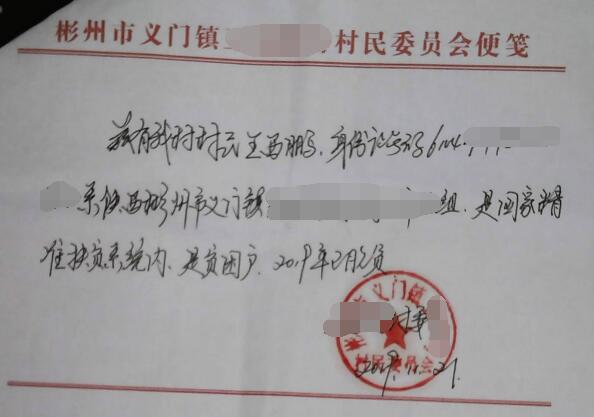 彬州市义门镇 村民委员会便笺
兹有我村村民王西鹏,身份证号码6104
系陕西彬州市义门镇 组,是国家精
准扶贫系统内,是贫困户,2019年2月脱贫
彬州市义门镇
村委
村民委员会
2019.11.21.